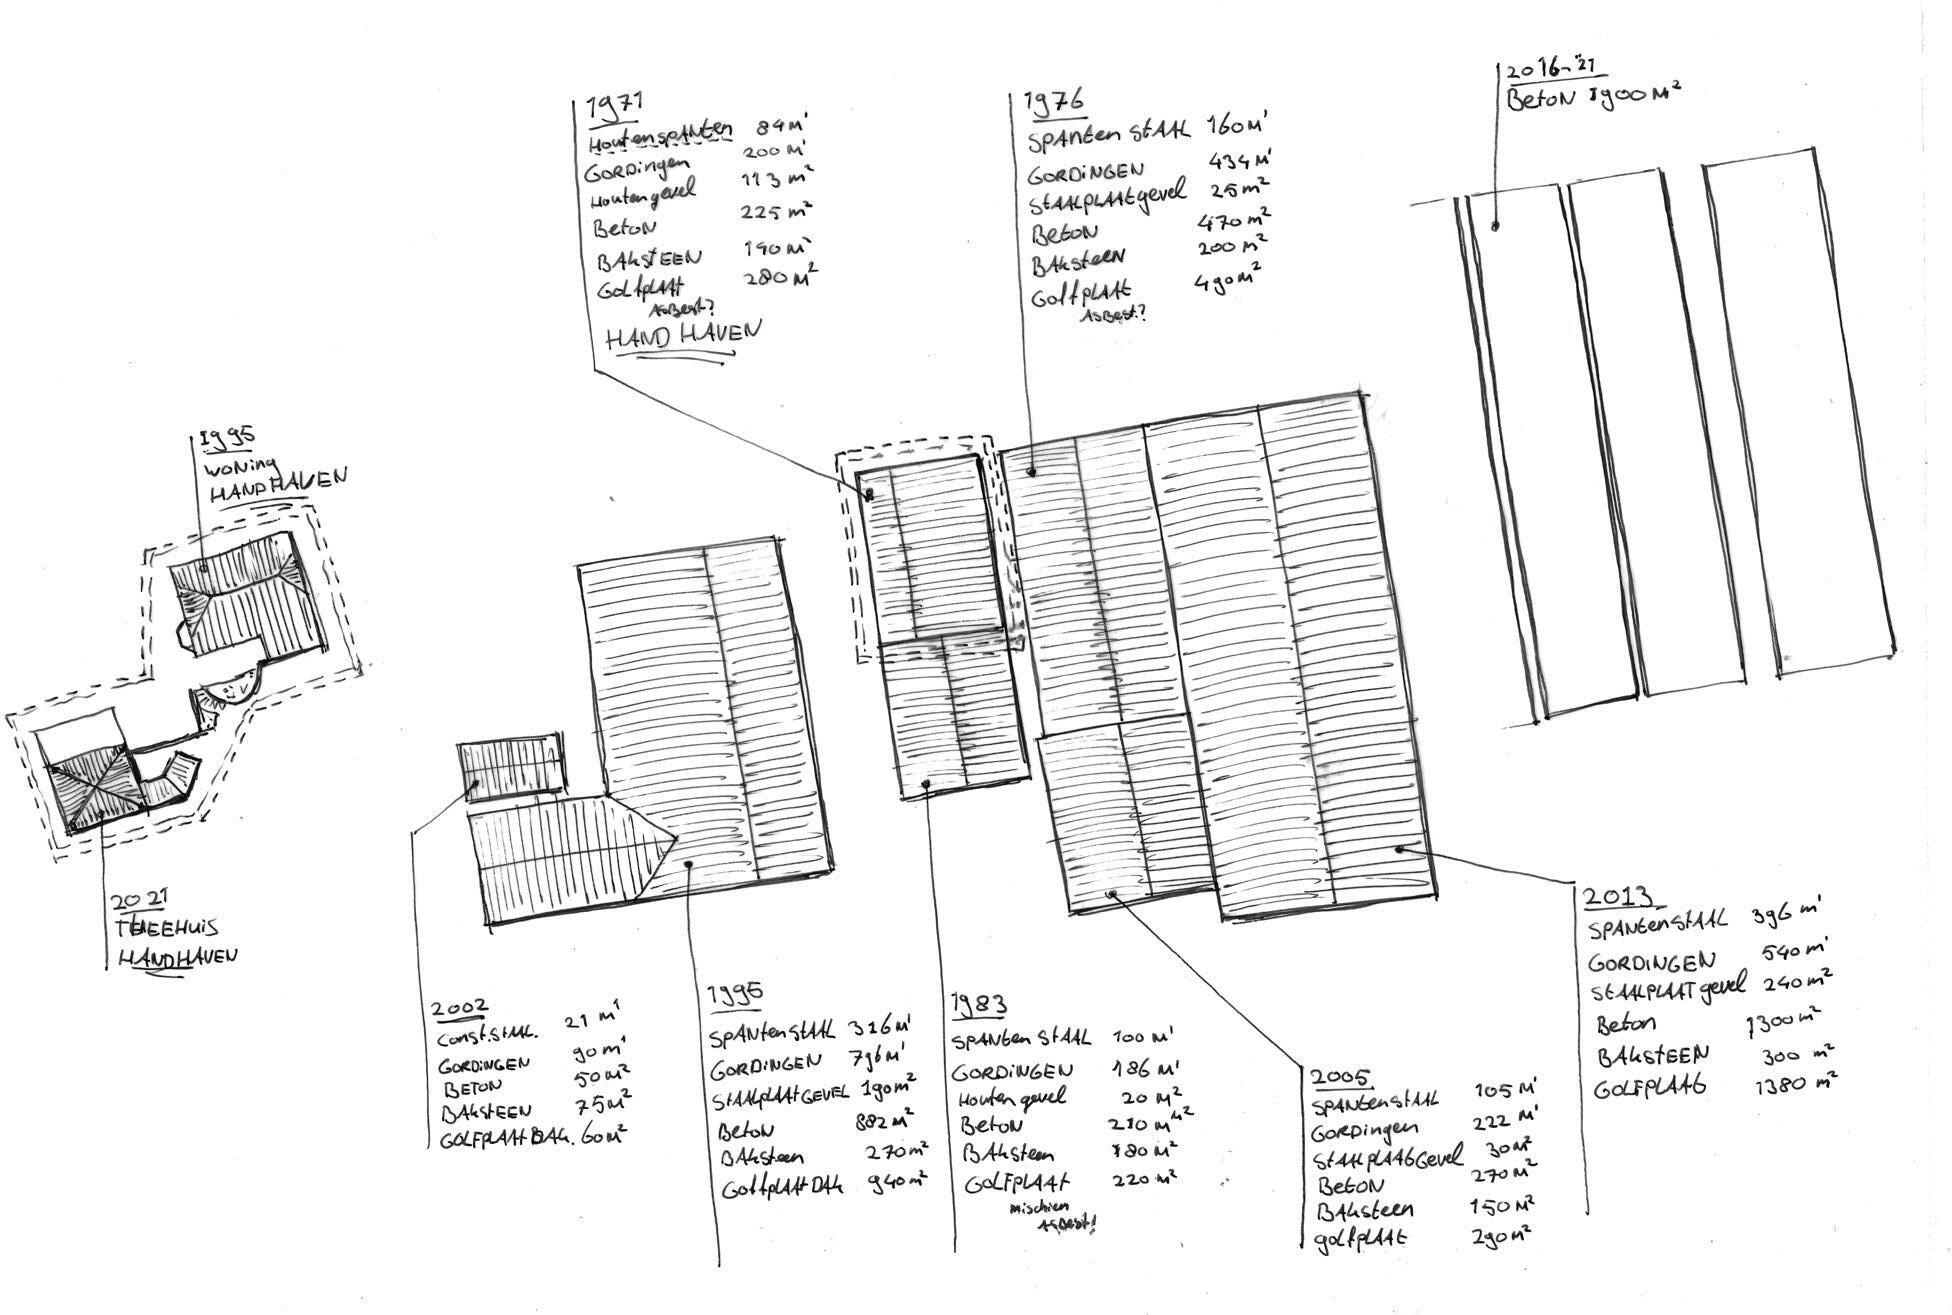 1971
Houtenspanten 84 m'
Gordingen 200 m'
Houtengevel 113 m²
Beton 225 m²
Baksteen 190 m²
Golfplaat 280 m²
Asbest?
HANDHAVEN
1976
Spanten staal 160 m'
Gordingen 434 m'
Staalplaatgevel 25 m²
Beton 470 m²
Baksteen 200 m²
Golfplaat 490 m²
Asbest?
2016-'21
Beton 1900 m²
1995
Woning
HANDHAVEN
2021
THEEHUIS
HANDHAVEN
2002
Const. staal. 21 m'
Gordingen 90 m'
Beton 50 m²
Baksteen 75 m²
Golfplaat dak. 60 m²
1995
Spanten staal 316 m'
Gordingen 796 m'
Staalplaatgevel 190 m²
Beton 882 m²
Baksteen 270 m²
Golfplaat dak 940 m²
1983
Spanten staal 100 m'
Gordingen 186 m'
Houten gevel 20 m²
Beton 210 m²
Baksteen 180 m²
Golfplaat 220 m²
mischien
Asbest!
2005
Spantenstaal 105 m'
Gordingen 222 m'
Staalplaatgevel 30 m²
Beton 270 m²
Baksteen 150 m²
golfplaat 290 m²
2013
Spantenstaal 396 m'
Gordingen 540 m'
Staalplaat gevel 240 m²
Beton 1300 m²
Baksteen 300 m²
Golfplaat 1380 m²